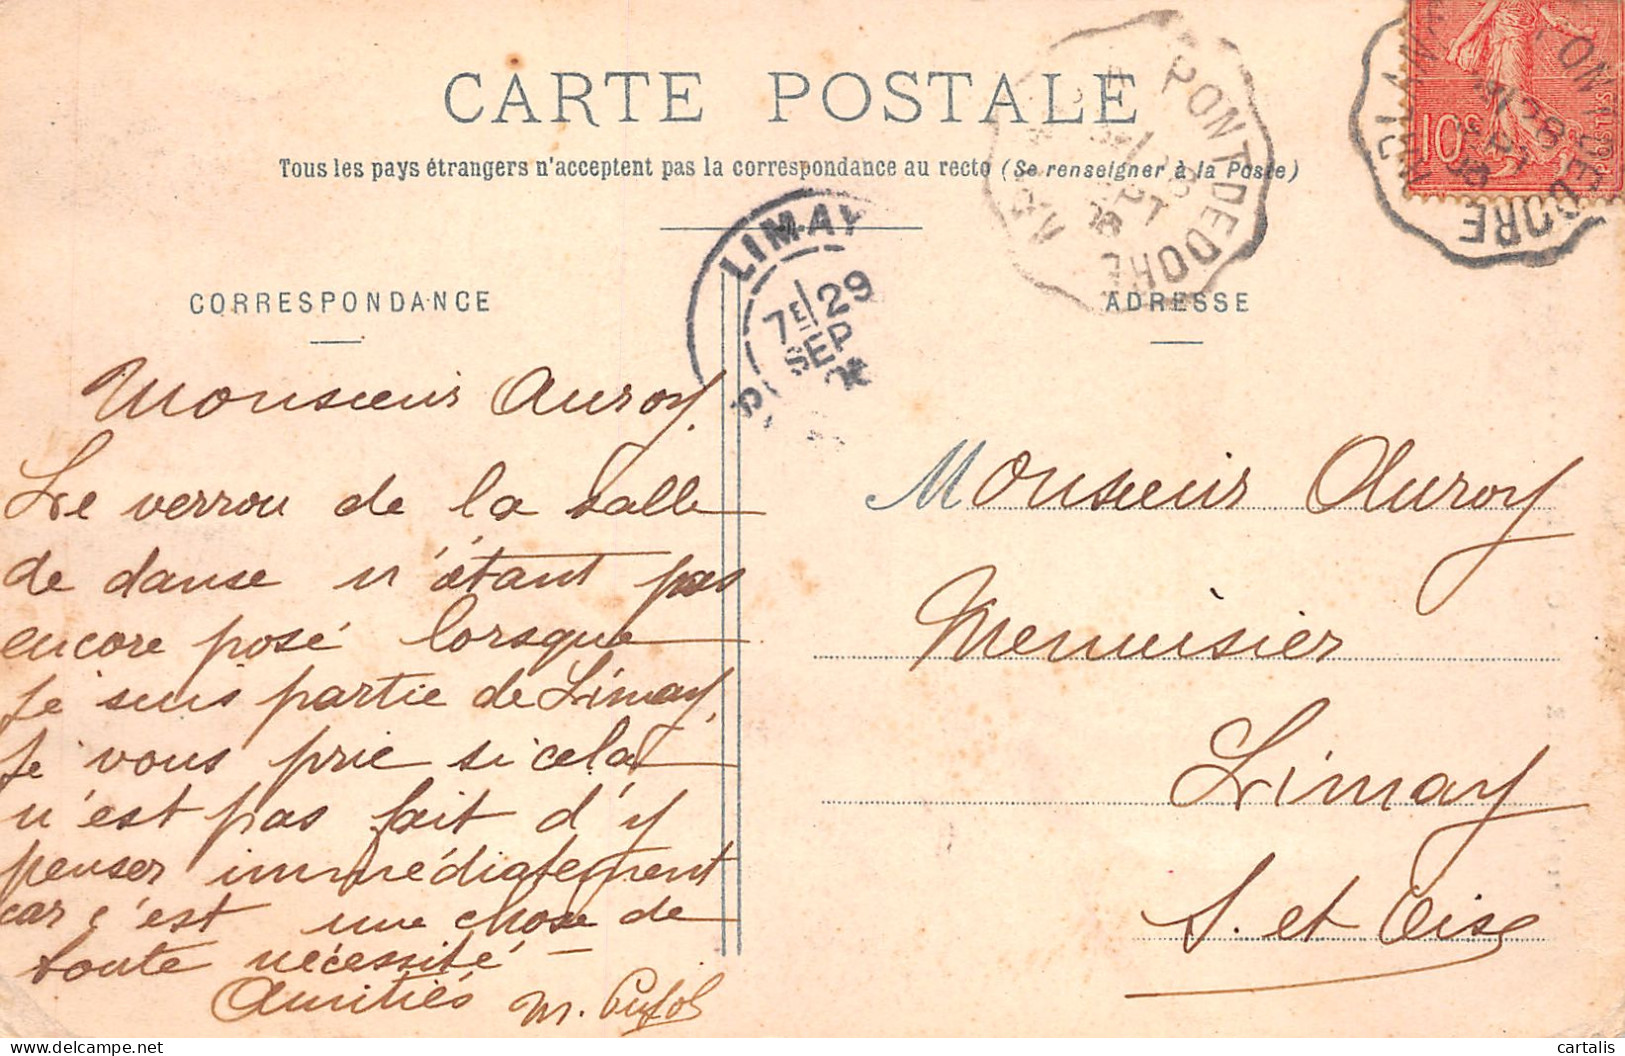 CARTE POSTALE
Tous les pays étrangers n'acceptent pas la correspondance au recto (Se renseigner à la Poste)
CORRESPONDANCE
ADRESSE
PONT DE DORE
PONT DE DORE
10
LIMAY
7E/29
SEP
Monsieur Auroy.
Le verrou de la salle
de danse n'étant pas
encore posé lorsque
je suis partie de Limay,
je vous prie si cela
n'est pas fait d'y
penser immédiatement
car c'est une chose de
toute nécessité –
Amitiés M. Pujol
Monsieur Auroy
Menuisier
Limay
S. et Oise
cartalis
www.delcampe.net